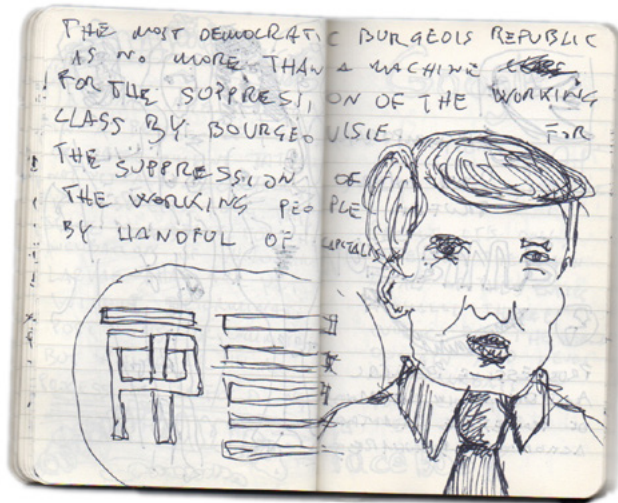 THE MOST DEMOCRATIC BURGEOIS REPUBLIC
IS NO MORE THAN A MACHINE
FOR THE SUPPRESSION OF THE WORKING
CLASS BY BOURGEOUISIE FOR
THE SUPPRESSION OF
THE WORKING PEOPLE
BY HANDFUL OF CAPITALI